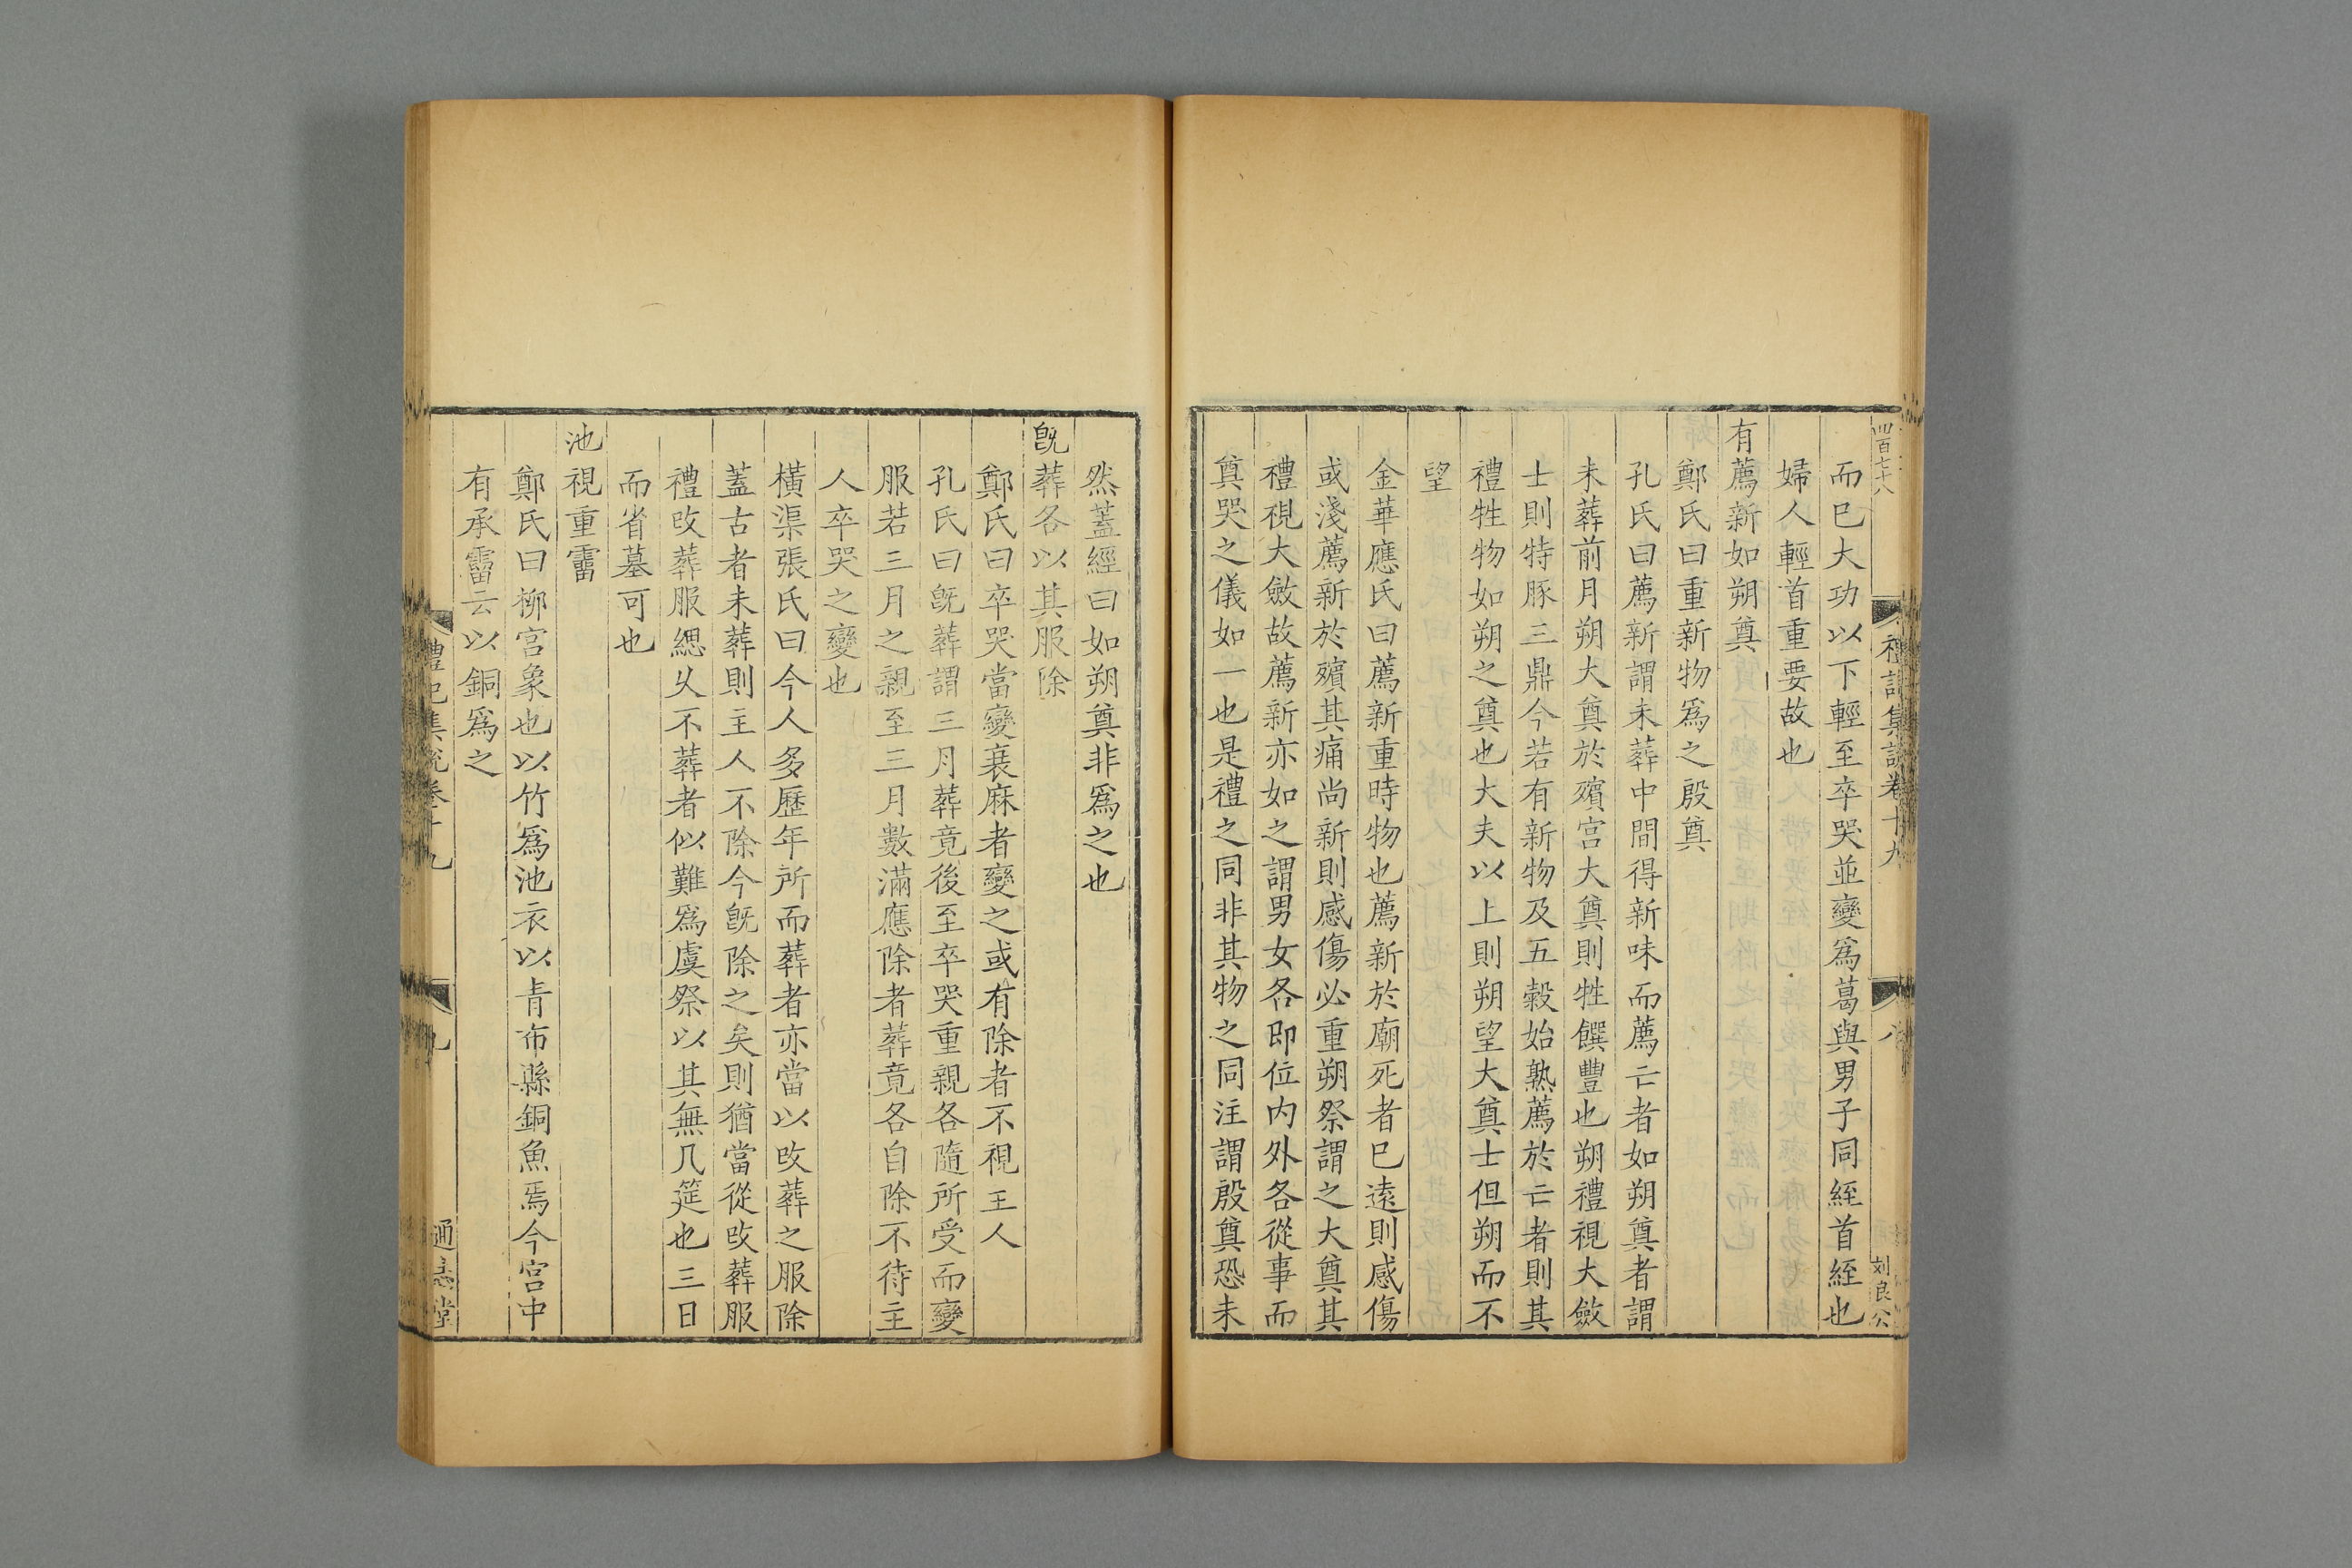 四百七十八
禮記集說卷十九
八
刘良公
而巳大功以下輕至卒哭並變爲葛與男子同絰首絰也
婦人輕首重要故也
有薦新如朔奠
鄭氏曰重新物爲之殷奠
孔氏曰薦新謂未葬中間得新味而薦亡者如朔奠者謂
未葬前月朔大奠於殯宫大奠則牲饌豐也朔禮視大斂
士則特豚三鼎今若有新物及五穀始熟薦於亡者則其
禮牲物如朔之奠也大夫以上則朔望大奠士但朔而不
望
金華應氏曰薦新重時物也薦新於廟死者巳遠則感傷
或淺薦新於殯其痛尚新則感傷必重朔祭謂之大奠其
禮視大斂故薦新亦如之謂男女各即位内外各從事而
奠哭之儀如一也是禮之同非其物之同注謂殷奠恐未
然蓋經曰如朔奠非爲之也
旣葬各以其服除
鄭氏曰卒哭當變衰麻者變之或有除者不視王人
孔氏曰旣葬謂三月葬竟後至卒哭重親各隨所受而變
服若三月之親至三月數滿應除者葬竟各自除不待主
人卒哭之變也
橫渠張氏曰今人多歷年所而葬者亦當以改葬之服除
蓋古者未葬則主人不除今旣除之矣則猶當從改葬服
禮改葬服緦乆不葬者似難爲虞祭以其無几筵也三日
而省墓可也
池視重霤
鄭氏曰柳宫象也以竹爲池衣以青布縣銅魚焉今宫中
有承霤云以銅爲之
禮記集說卷十九
九
通志堂